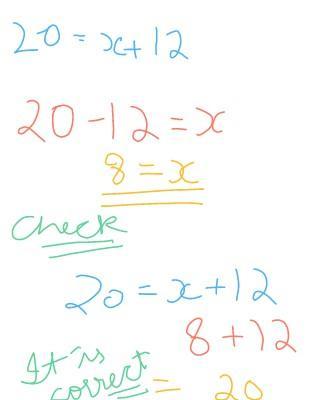 20 = x + 12
20 - 12 = x
8 = x
Check
20 = x + 12
8 + 12
It is
correct = 20